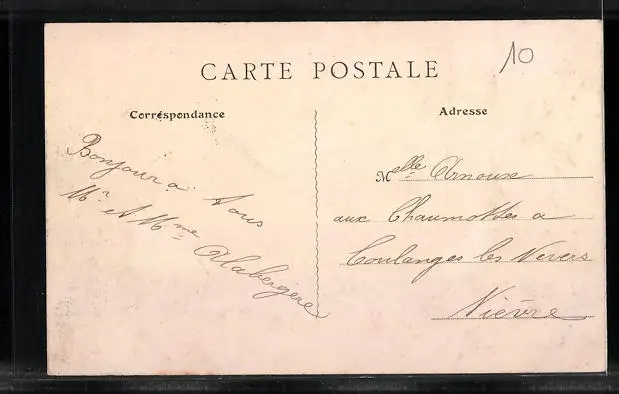 10
CARTE POSTALE
Correspondance
Adresse
Bonjour a tous
Mr et Mme Alabergère
Melle Arnoux
aux Chaumottes a
Coulanges les Nevers
Nièvre